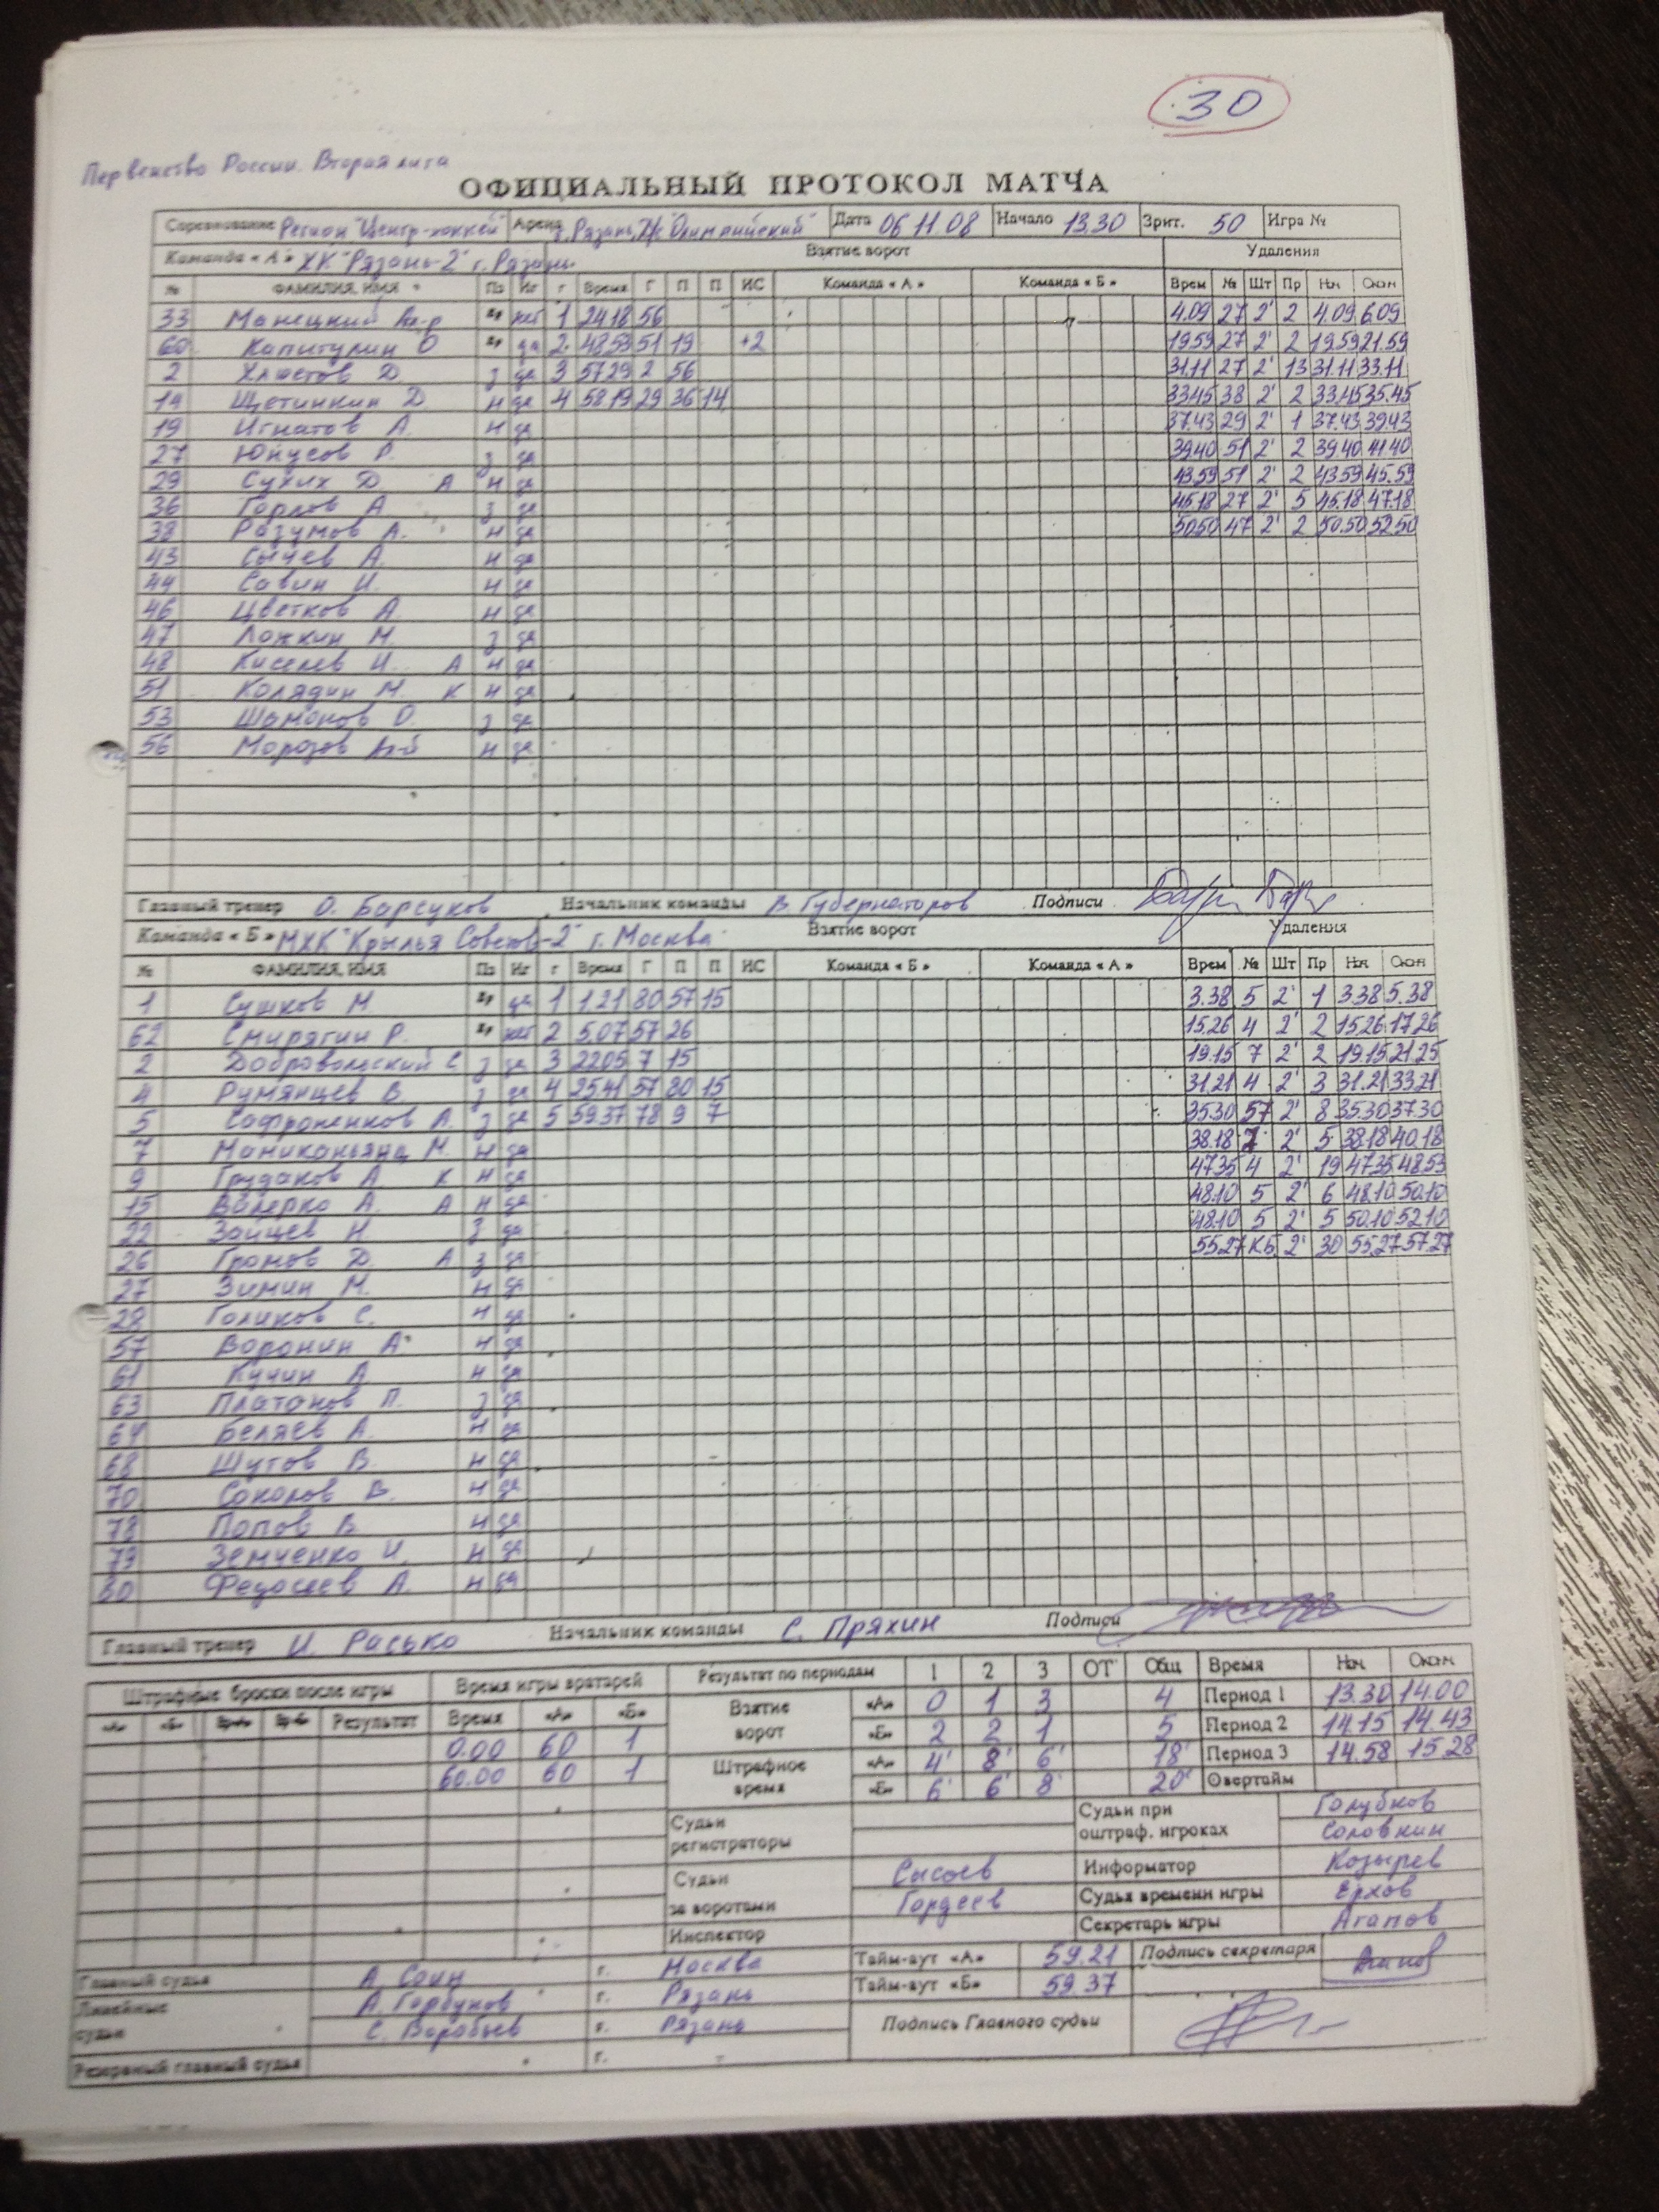 30
Первенство России. Вторая лига
ОФИЦИАЛЬНЫЙ ПРОТОКОЛ МАТЧА
Соревнование Регион "Центр-хоккей" Арена г. Рязань, "Олимпийский" Дата 06 11.08 Начало 13.30 Зрит. 50 Игра №
Команда «А» ХК "Рязань-2" г. Рязань Взятие ворот Удаления
№ ФАМИЛИЯ, ИМЯ Пз Иг г Время Г П П ИС Команда «А» Команда «Б» Врем № Шт Пр Нач Окон
33 Манецкий Ал-р вр нет 1 24.18 56 4.09 27 2' 2 4.09 6.09
60 Капитулин О вр да 2 48.53 51 19 +2 19.59 27 2' 2 19.59 21.59
2 Хлыстов Д. з да 3 57.29 2 56 31.11 27 2' 13 31.11 33.11
14 Щетинкин Д. н да 4 58.19 29 36 14 33.45 38 2' 2 33.45 35.45
19 Игнатов А. н да 37.43 29 2' 1 37.43 39.43
27 Юнусов Р. з да 39.40 51 2' 2 39.40 41.40
29 Сухих Д. А н да 43.59 51 2' 2 43.59 45.59
36 Горлов А з да 45.18 27 2' 5 45.18 47.18
38 Разумов А. н да 50.50 47 2' 2 50.50 52.50
43 Сычев А. н да
44 Савин И. н да
46 Цветков А н да
47 Ложкин М. з да
48 Киселев И. А н да
51 Колядин М. К н да
53 Шамонов О. з да
56 Морозов Ал-й н да
Главный тренер О. Барсуков Начальник команды В. Губернаторов Подписи
Команда «Б» МХК "Крылья Советов-2" г. Москва Взятие ворот Удаления
№ ФАМИЛИЯ, ИМЯ Пз Иг г Время Г П П ИС Команда «Б» Команда «А» Врем № Шт Пр Нач Окон
1 Сушков М. вр да 1 1.21 80 57 15 3.38 5 2' 1 3.38 5.38
62 Смирягин Р. вр нет 2 5.07 57 26 15.26 4 2' 2 15.26 17.26
2 Добровольский С з да 3 22.05 7 15 19.15 7 2' 2 19.15 21.25
4 Румянцев В. з да 4 25.41 57 80 15 31.21 4 2' 3 31.21 33.21
5 Сафроненков А. з да 5 59.37 78 9 7 35.30 57 2' 8 35.30 37.30
7 Маниканьянц М. н да 38.18 7 2' 5 38.18 40.18
9 Грудаков А. К н да 47.35 4 2' 19 47.35 48.53
15 Валерко А. А н да 48.10 5 2' 6 48.10 50.10
22 Зайцев Н. з да 48.10 5 2' 5 50.10 52.10
26 Громов Д. А з да 55.27 К.Б. 2' 30 55.27 57.27
27 Зимин М. н да
28 Голиков С. н да
57 Воронин А. н да
61 Кучин А н да
63 Платонов П. з да
64 Беляев А. н да
68 Шутов В. н да
70 Соколов В. н да
78 Попов В. н да
79 Земченко И. н да
80 Федосеев А. н да
Главный тренер И. Расько Начальник команды С. Пряхин Подписи
Штрафные броски после игры Время игры вратарей Результат по периодам 1 2 3 ОТ Общ Время Нач Оконч
«А» «Б» Вр«А» Вр«Б» Результат Время «А» «Б» Взятие ворот «А» 0 1 3 4 Период 1 13.30 14.00
0.00 60 1 «Б» 2 2 1 5 Период 2 14.15 14.43
60.00 60 1 Штрафное время «А» 4' 8' 6' 18' Период 3 14.58 15.28
«Б» 6' 6' 8' 20' Овертайм
Судьи регистраторы Судьи при оштраф. игроках Голубков
Соловкин
Судьи за воротами Сысоев Информатор Козырев
Гордеев Судья времени игры Ерхов
Инспектор Секретарь игры Агапов
Главный судья А. Соин г. Москва Тайм-аут «А» 59.21 Подпись секретаря
Линейные судьи А. Горбунов г. Рязань Тайм-аут «Б» 59.37
С. Воробьев г. Рязань Подпись Главного судьи
Резервный главный судья г.